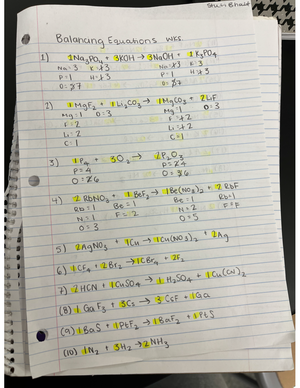 Balancing Equations WKS
1) 1Na₃PO₄ + 3KOH → 3NaOH + 1K₃PO₄
P=1
P=1
2) 1MgF₂ + 1Li₂CO₃ → 1MgCO₃ + 2LiF
Mg=1 O=3 Mg=1 O=3
F=2
Li=2
C=1 C=1
3) 1P₄ + 3O₂ → 2P₂O₃
P=4
4) 2RbNO₃ + 1BeF₂ → 1Be(NO₃)₂ + 2RbF
Rb=1 Be=1 Be=1 Rb=1
N=1 N=2
O=3
5) 2AgNO₃ + 1Cu → 1Cu(NO₃)₂ + 2Ag
6) 1CF₄ + 2Br₂ → 1CBr₄ + 2F₂
7) 2HCN + 1CuSO₄ → 1H₂SO₄ + 1Cu(CN)₂
(8) 1GaF₃ + 3Cs → 3CsF + 1Ga
(9) 1BaS + 1PtF₂ → 1BaF₂ + 1PtS
(10) 1N₂ + 3H₂ → 2NH₃